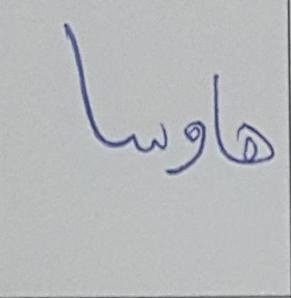 هاوسا